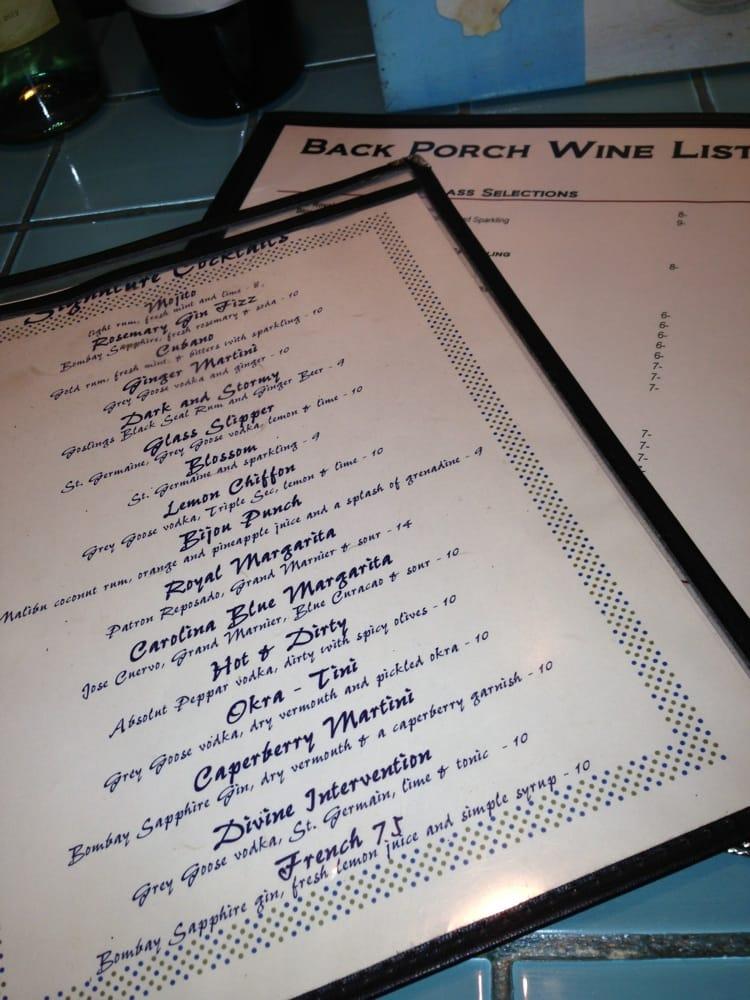 Back Porch Wine List
ass Selections
d Sparkling
8-
9-
LING
8-
6-
6-
6-
6-
7-
7-
7-
7-
7-
7-
Signature Cocktails
Mojito
light rum, fresh mint and lime - 8
Rosemary Gin Fizz
Bombay Sapphire, fresh rosemary & soda - 10
Cubano
Gold rum, fresh mint, & bitters with sparkling - 10
Ginger Martini
Grey Goose vodka and ginger - 10
Dark and Stormy
Goslings Black Seal Rum and Ginger Beer - 9
Glass Slipper
St. Germaine, Grey Goose vodka, lemon & lime - 10
Blossom
St. Germaine and sparkling - 9
Lemon Chiffon
Grey Goose vodka, Triple Sec, lemon & lime - 10
Bijou Punch
Malibu coconut rum, orange and pineapple juice and a splash of grenadine - 9
Royal Margarita
Patron Reposado, Grand Marnier & sour - 14
Carolina Blue Margarita
Jose Cuervo, Grand Marnier, Blue Curacao & sour - 10
Hot & Dirty
Absolut Peppar vodka, dirty with spicy olives - 10
Okra - Tini
Grey Goose vodka, dry vermouth and pickled okra - 10
Caperberry Martini
Bombay Sapphire Gin, dry vermouth & a caperberry garnish - 10
Divine Intervention
Grey Goose vodka, St. Germain, lime & tonic - 10
French 75
Bombay Sapphire gin, fresh lemon juice and simple syrup - 10